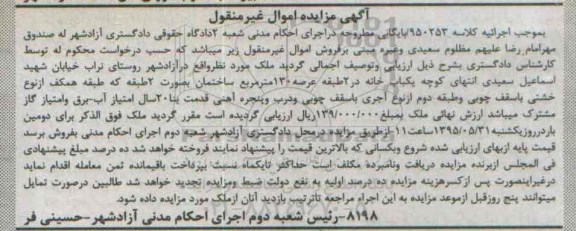 آگهی مزایده اموال غیرمنقول
بموجب اجرائیه کلاسه ۹۵۰۲۵۳بایگانی مطروحه دراجرای احکام مدنی شعبه ۲دادگاه حقوقی دادگستری آزادشهر له صندوق
مهرامام رضا علیهم مظلوم سعیدی وغیره مبنی برفروش اموال غیرمنقول زیر میباشد که حسب درخواست محکوم له توسط
کارشناس دادگستری بشرح ذیل ارزیابی وتوصیف اجمالی گردید ملک مورد نظرواقع درآزادشهر روستای تراب خیابان شهید
اسماعیل سعیدی انتهای کوچه یکباب خانه در۲طبقه عرصه۱۳۰مترمربع ساختمان بصورت ۲طبقه که طبقه همکف ازنوع
خشتی باسقف چوبی وطبقه دوم ازنوع آجری باسقف چوبی ودرب وپنجره آهنی قدمت بنا۲۰سال امتیاز آب-برق وامتیاز گاز
مشترک میباشد ارزش نهائی ملک بمبلغ۱۳۹/۰۰۰/۰۰۰ریال ارزیابی گردیده است مقرر گردید ملک فوق الذکر برای دومین
باردرروزیکشنبه۱۳۹۵/۰۵/۳۱ساعت۱۱ ازطریق مزایده در محل دادگستری آزادشهر شعبه دوم اجرای احکام مدنی بفروش برسد
قیمت پایه ازبهای ارزیابی شده شروع وبکسانی که بالاترین قیمت را پیشنهاد نمایند فروخته خواهد شد ده درصد مبلغ پیشنهادی
فی المجلس ازبرنده مزایده دریافت ونامبرده مکلف است حداکثر تایکماه نسبت بپرداخت باقیمانده ثمن معامله اقدام نماید
درغیراینصورت پس ازکسرهزینه مزایده ده درصد اولیه به نفع دولت ضبط ومزایده تجدید خواهد شد طالبین درصورت تمایل
میتوانند پنج روزقبل ازموعد مزایده به این اجراء مراجعه تاترتیب بازدید آنان ازملک مورد مزایده داده شود.
۸۱۹۸-رئیس شعبه دوم اجرای احکام مدنی آزادشهر-حسینی فر